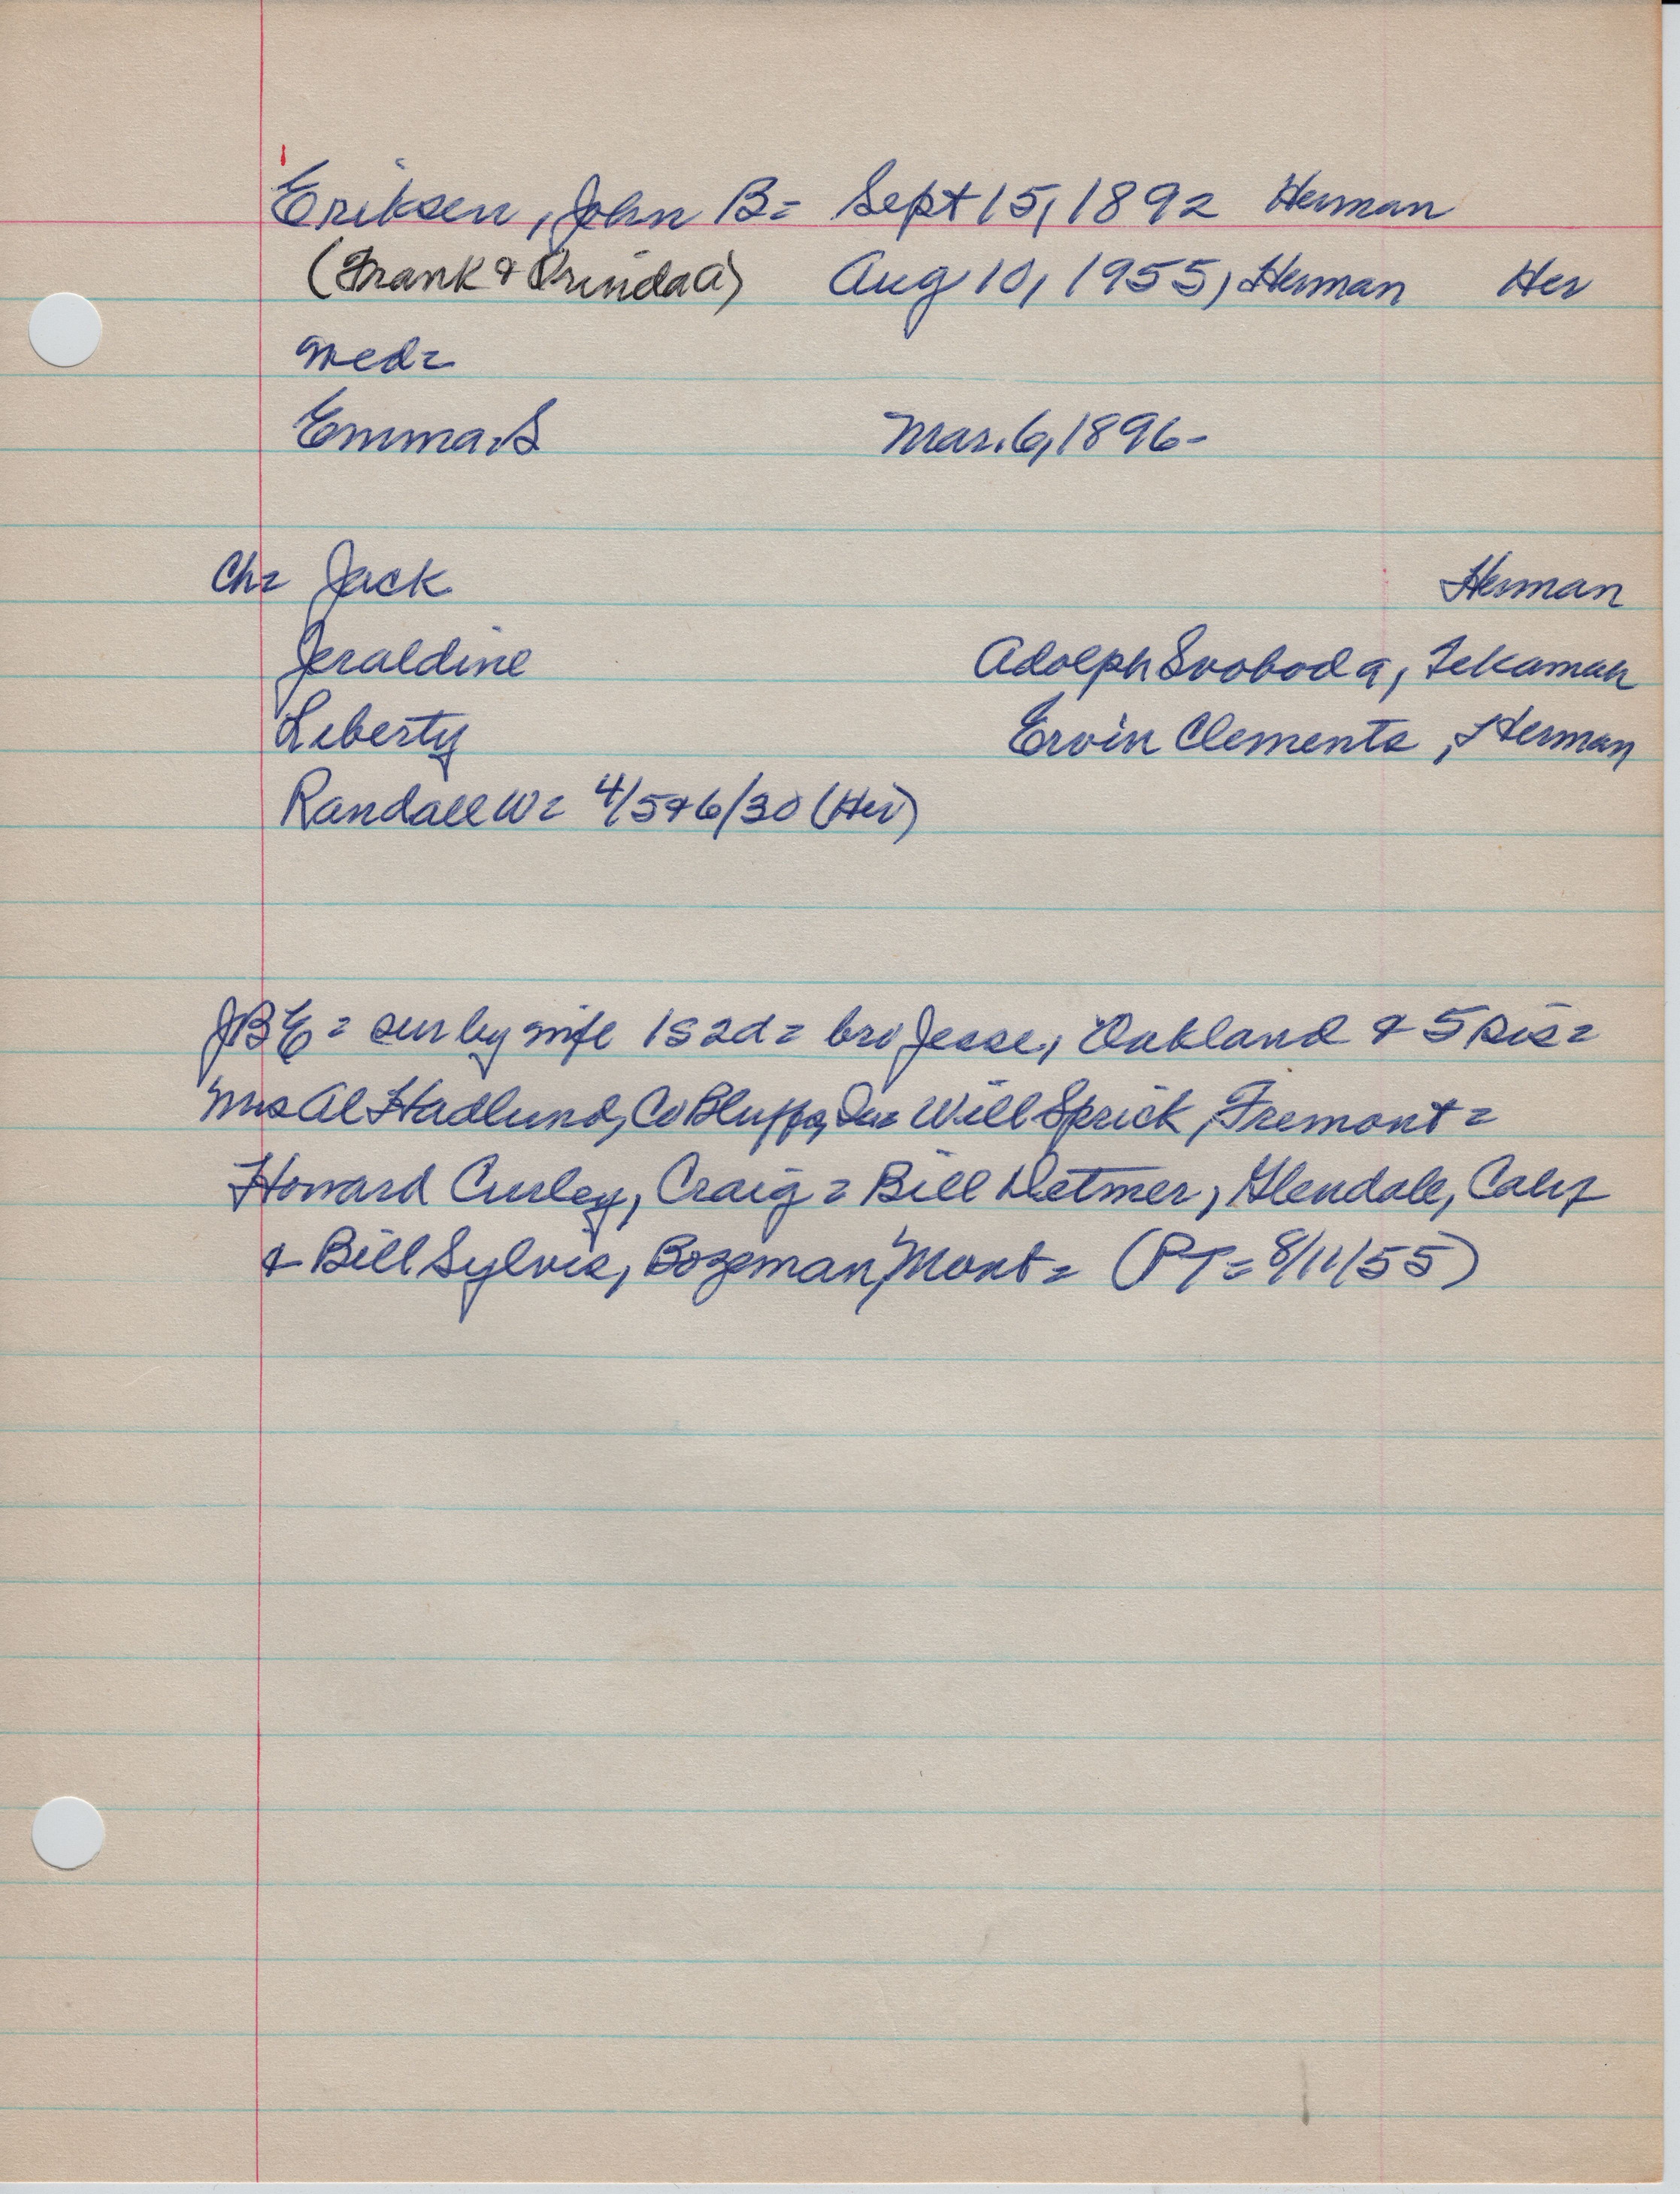 Eriksen, John B= Sept 15, 1892 Herman
(Frank & Prinda A) Aug 10, 1955, Herman Her
Med=
Emma S Mar. 6, 1896-
Ch= Jack Herman
Jeraldine Adolph Svoboda, Tekamah
Liberty Ervin Clements, Herman
Randall W= 4/5&6/30 (Her)
JBE= sur by wife 1s 2d= bro Jesse, Oakland & 5 sis=
Mrs Al Hadlund, Co Bluffs, Ia= Will Sprick, Fremont=
Howard Curley, Craig= Bill Detmer, Glendale, Calif
& Bill Sylvis, Bozeman, Mont= (PT= 8/11/55)